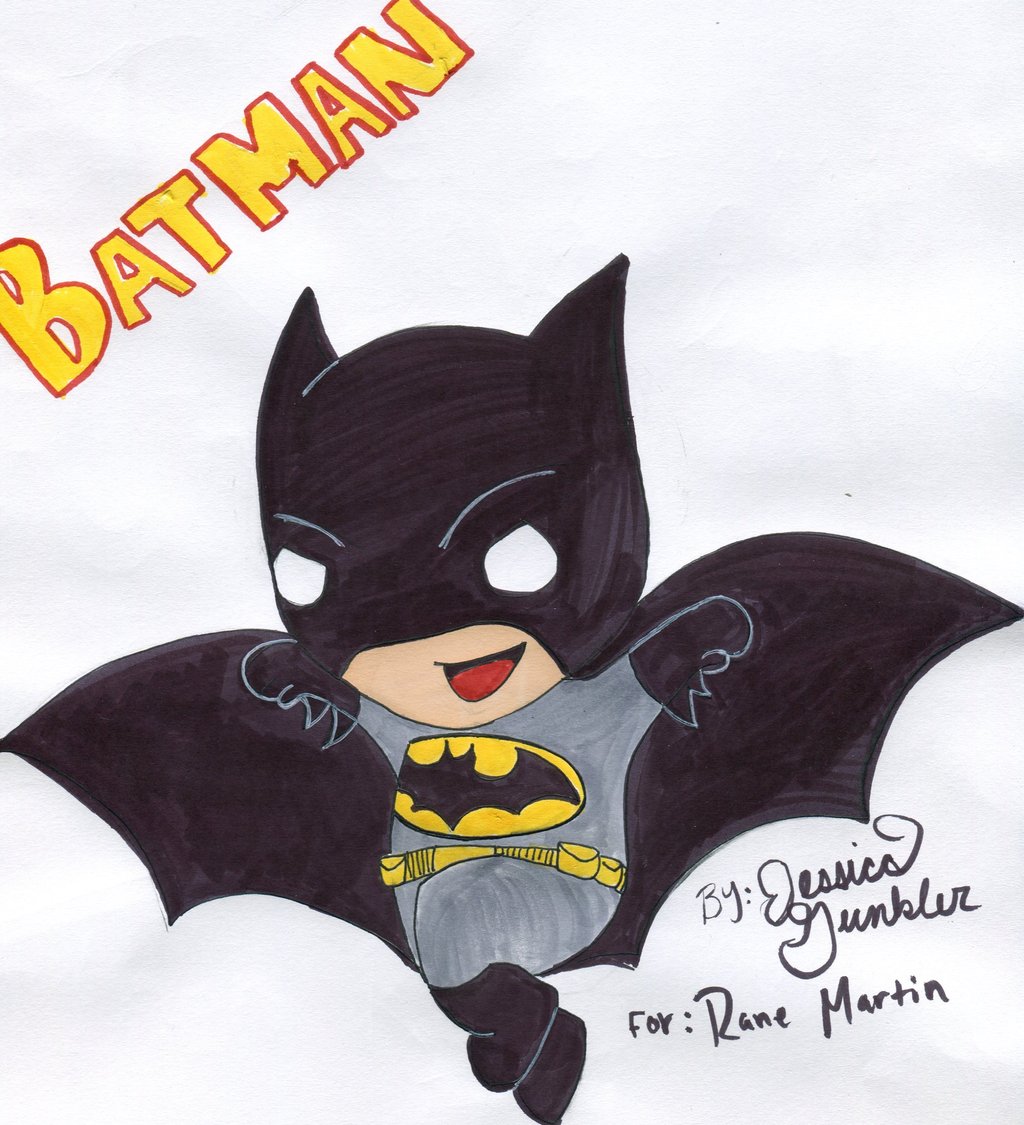 BATMAN
BY: Jessica
Gunkler
For: Rane Martin